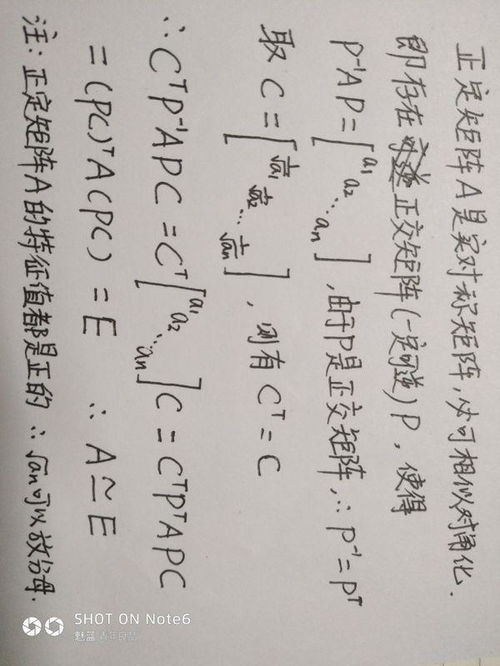 正定矩阵A是实对称矩阵,必可相似对角化.
即存在正交矩阵(一定可逆)P,使得
P⁻¹AP=[a₁ a₂ ⋱ aₙ],由于P是正交矩阵,∴P⁻¹=Pᵀ
取 C=[1/√a₁ 1/√a₂ ⋱ 1/√aₙ],则有 Cᵀ=C
∴CᵀP⁻¹APC=Cᵀ[a₁ a₂ ⋱ aₙ]C=CᵀPᵀAPC
=(PC)ᵀA(PC)=E ∴ A≃E
注:正定矩阵A的特征值都是正的 ∴√aₙ可以放分母.
SHOT ON Note6
魅蓝 青年良品